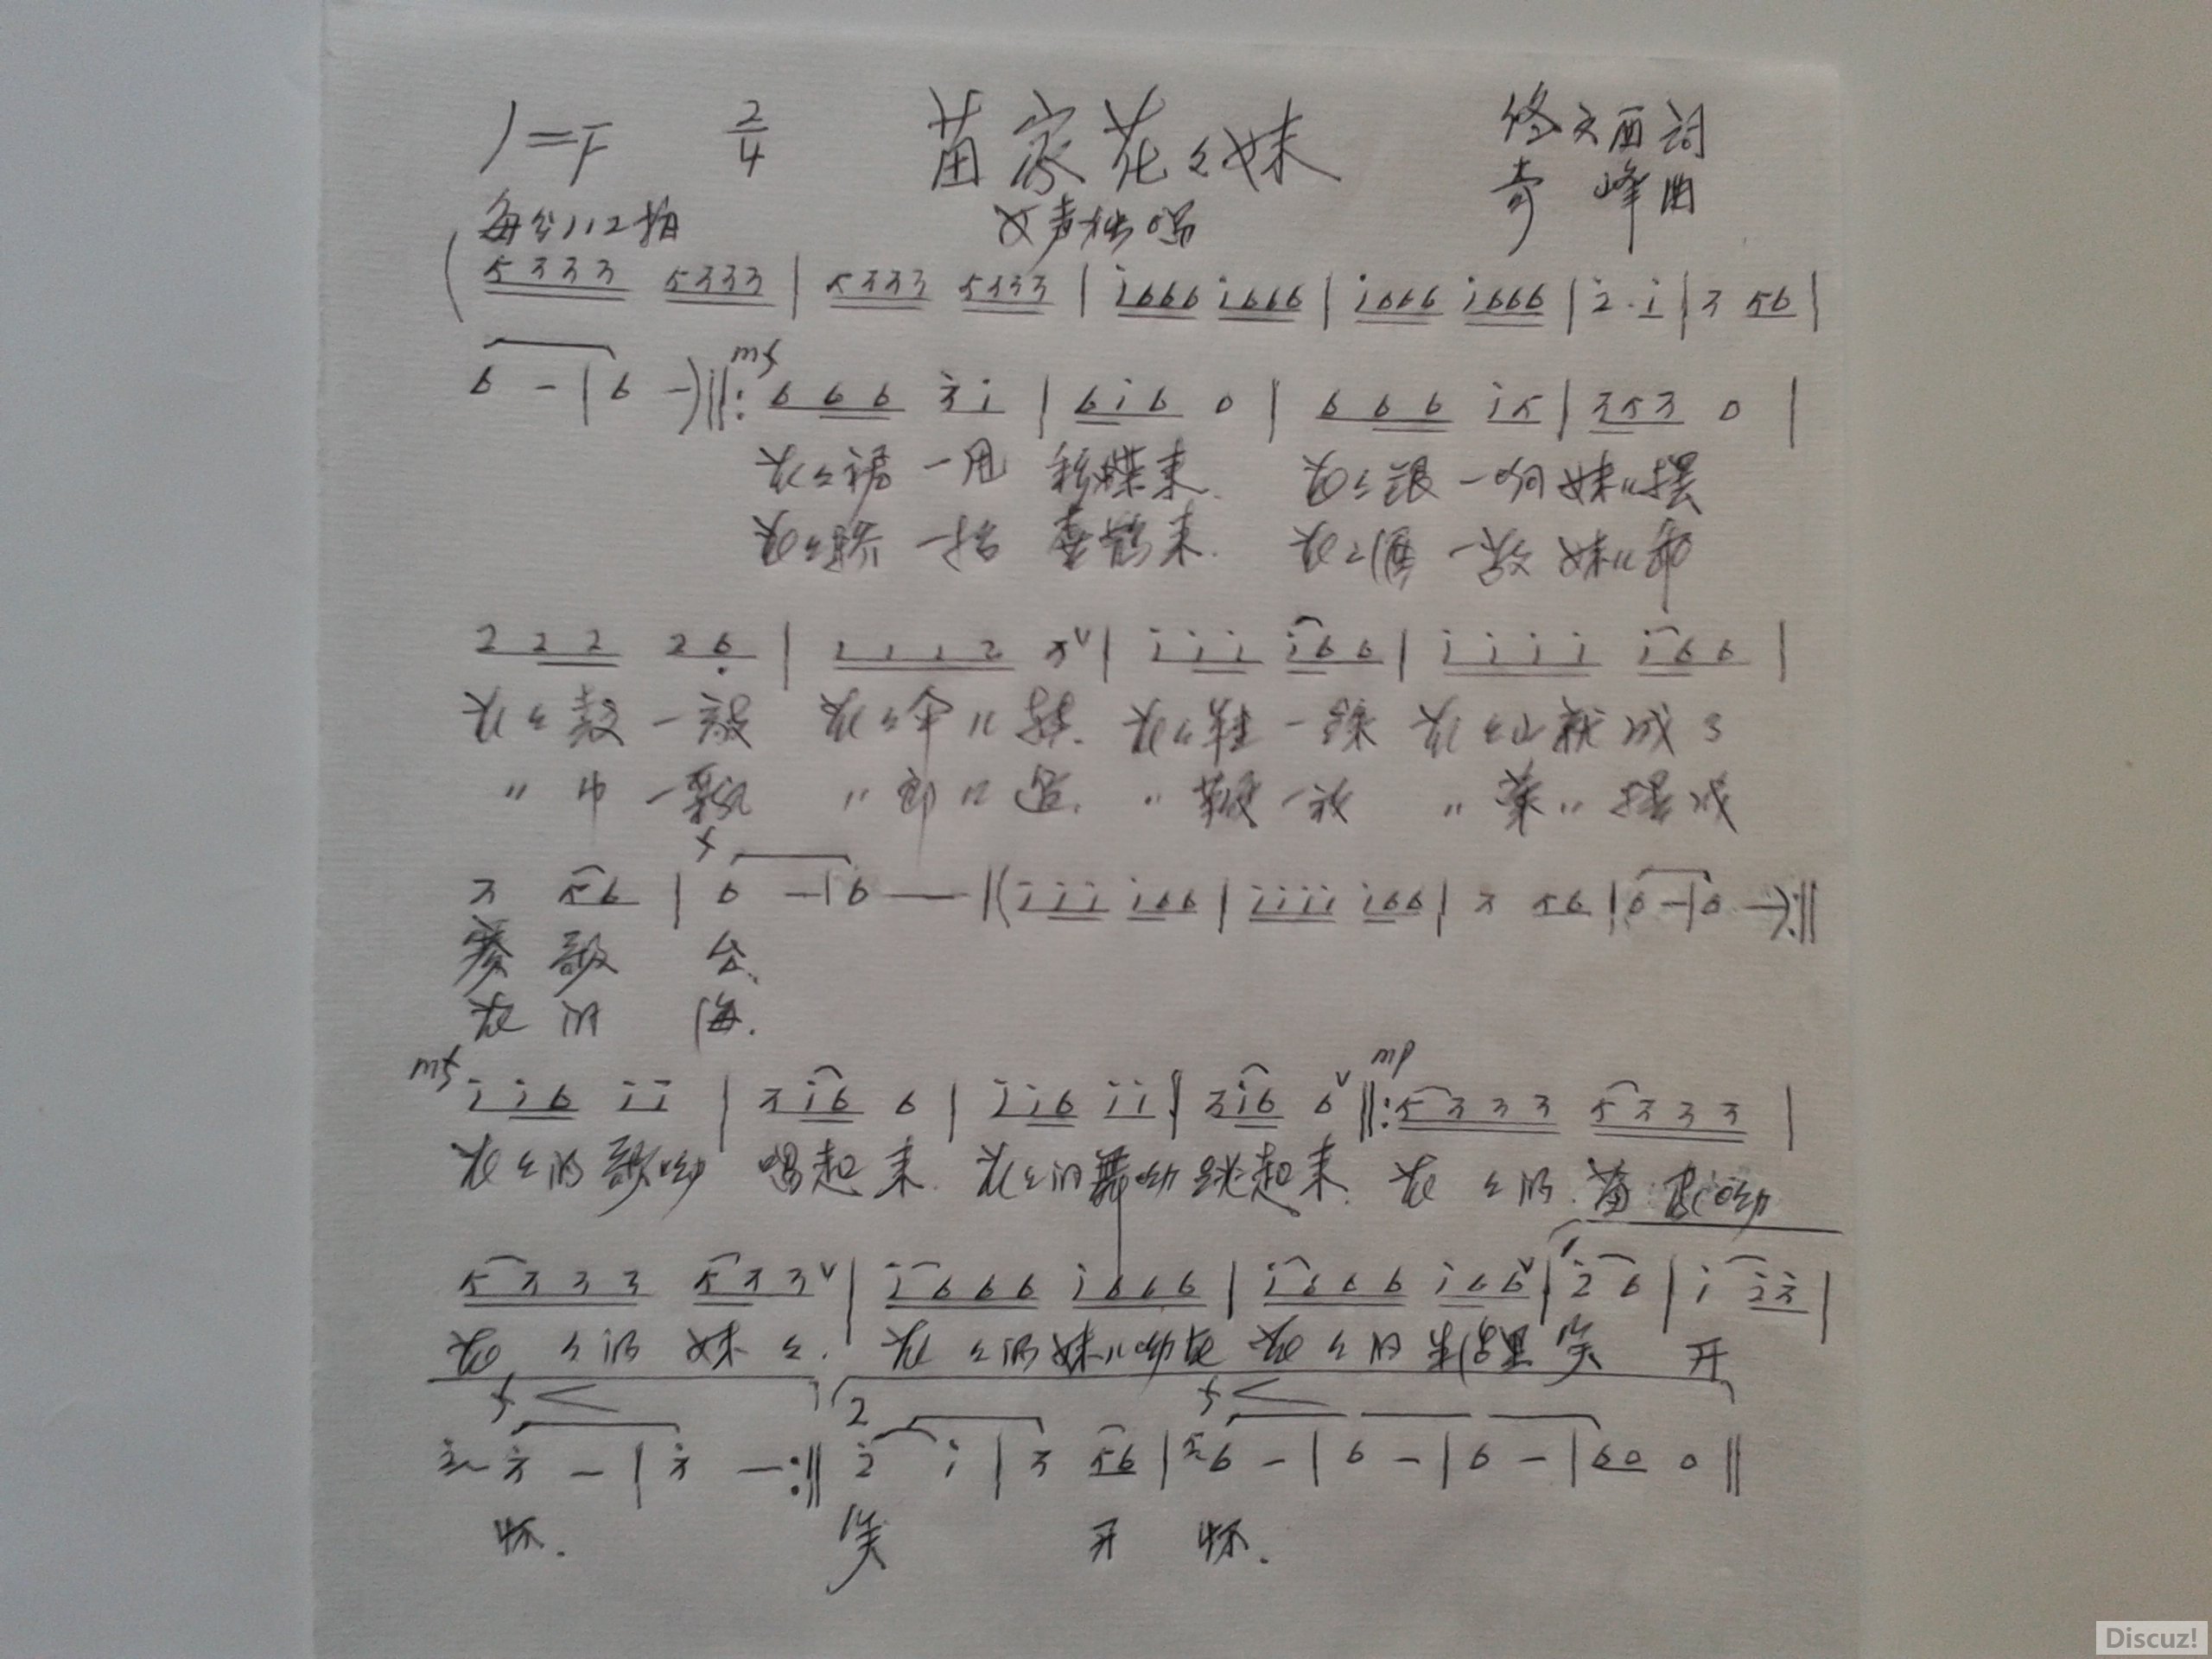 1=F 2/4 苗家花々妹 修文西词
每分112拍 女声独唱 奇峰曲
(5333 5333 | 5333 5333 | i666 i666 | i666 i666 | 2̇·i | 3 56 |
6 - | 6 -) ‖: mf 666 3̇i | 6i6 0 | 666 i5 | 353 0 |
花々裙一甩 彩蝶来. 花々银一响 妹〃摆
花々轿一抬 喜鹊来. 花々酒一敬 妹〃
222 26̣ | 1112 3ˇ | iii i66 | iiii i66 |
花々鼓一敲 花々伞〃转. 花々鞋一踩 花々山就成了
〃巾一飘 〃郎〃追. 〃鞭一放 〃寨〃摆成
3 56 | f 6 - | 6 — | (iii i66 | iiii i66 | 3 56 | 6 - | 6 -) :‖
赛歌台.
花的海.
mf ii6 ii | 3i6 6 | ii6 ii | 3i6 6ˇ ‖: mp 5333 5333 |
花々的歌哟 唱起来. 花々的舞哟跳起来. 花々的苗哟
5333 533ˇ | i666 i666 | i666 i66ˇ | 1 2̇ 6 | i 2̇3̇ |
花々的妹々. 花々的妹〃哟在 花々的生活里笑 开
f 3̇ - | 3̇ - :‖ 2 2̇ i | 3 56 | f 6 - | 6 - | 6 - | 60 0 ‖
怀. 笑 开 怀.
Discuz!